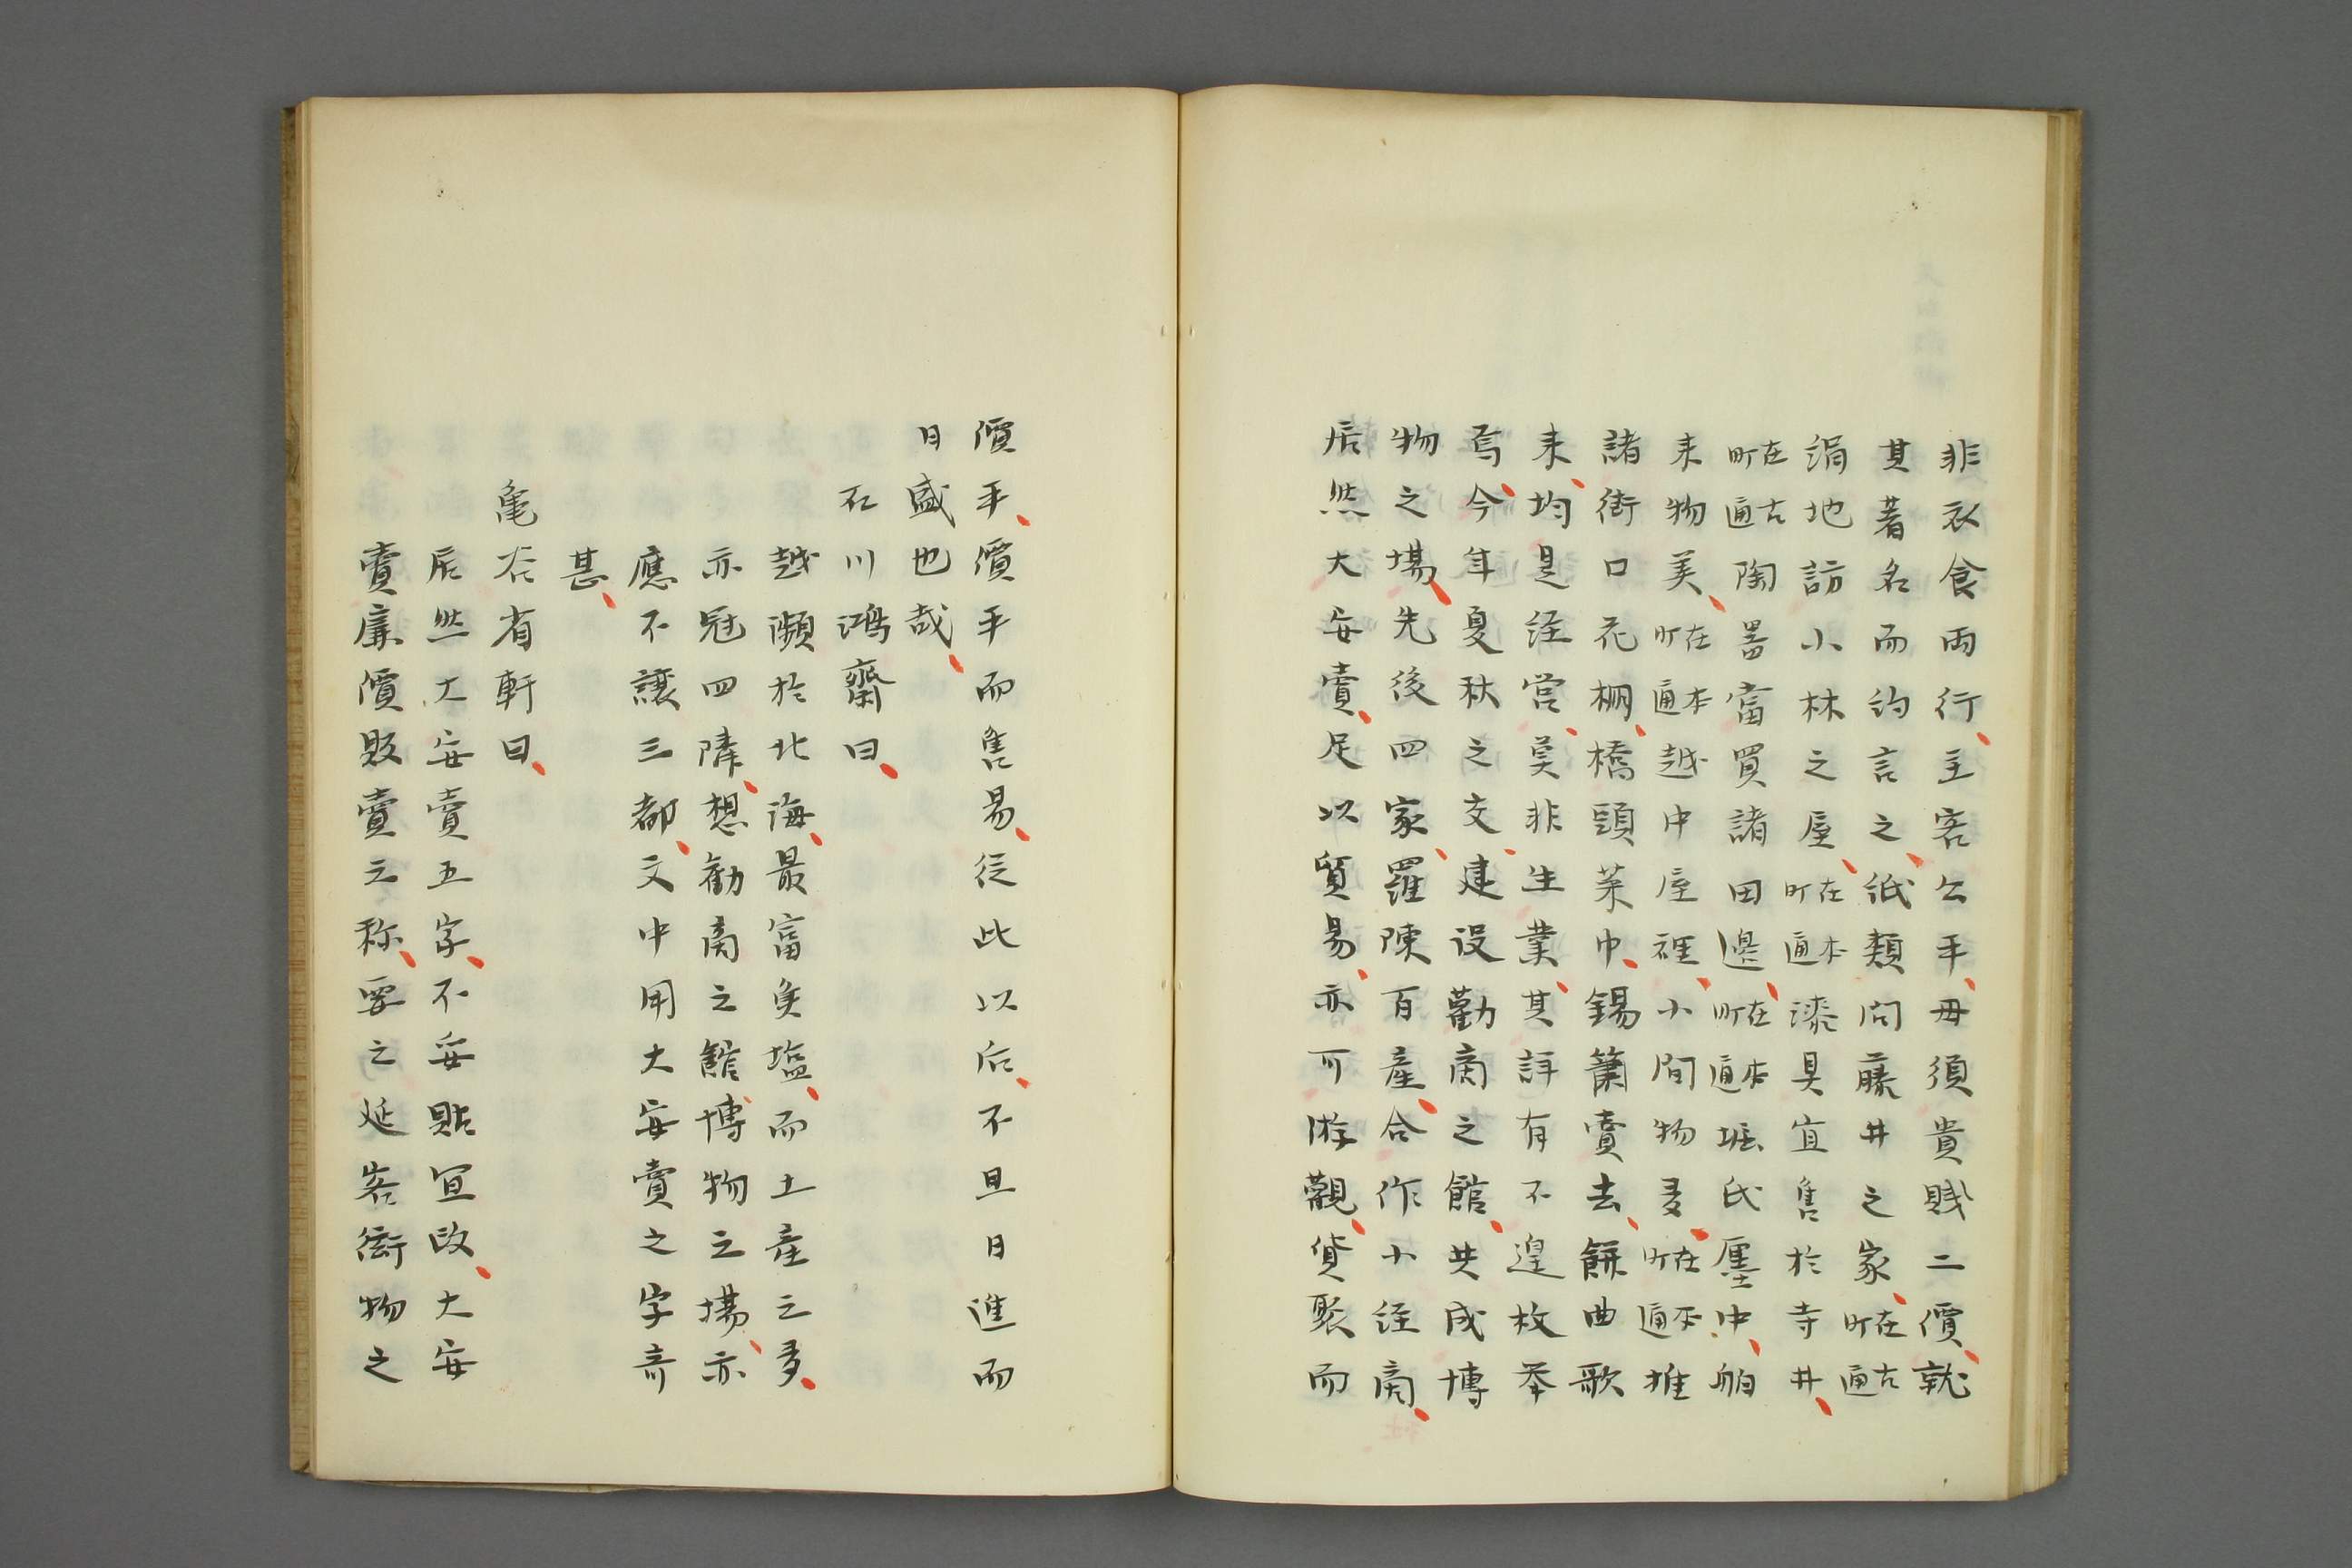 非衣食両行、主客公平、毋須貴賤二價、就
其著名而約言之、紙類問藤井之家、在古町通
絹地訪小林之屋、在本町通漆具宜售於寺井、
在古町通陶器富買諸田邊、在本町通堀氏廛中、舶
来物美、在本町通越中屋裡、小間物多、在本町通推
諸街口花棚、橋頭菜巾、錫簫賣去、餅曲歌
来、均是経営、莫非生業、其詳有不遑枚挙
焉、今年夏秋之交、建設勸商之館、共成博
物之場、先後四家、羅陳百産、合作小経商、
居然大安賣、足以貿易、亦可游觀、貨聚而
價平、價平而售易、従此以后、不旦日進而
日盛也哉、
石川鴻齋曰、
越瀕於北海、最富魚塩、而土産之多、
亦冠四隣、想勧商之館、博物之場、亦
應不譲三都、文中用大安賣之字奇
甚、
亀谷省軒曰、
居然大安賣五字、不妥貼宜改、大安
賣廉價販賣之称、要之延客衒物之